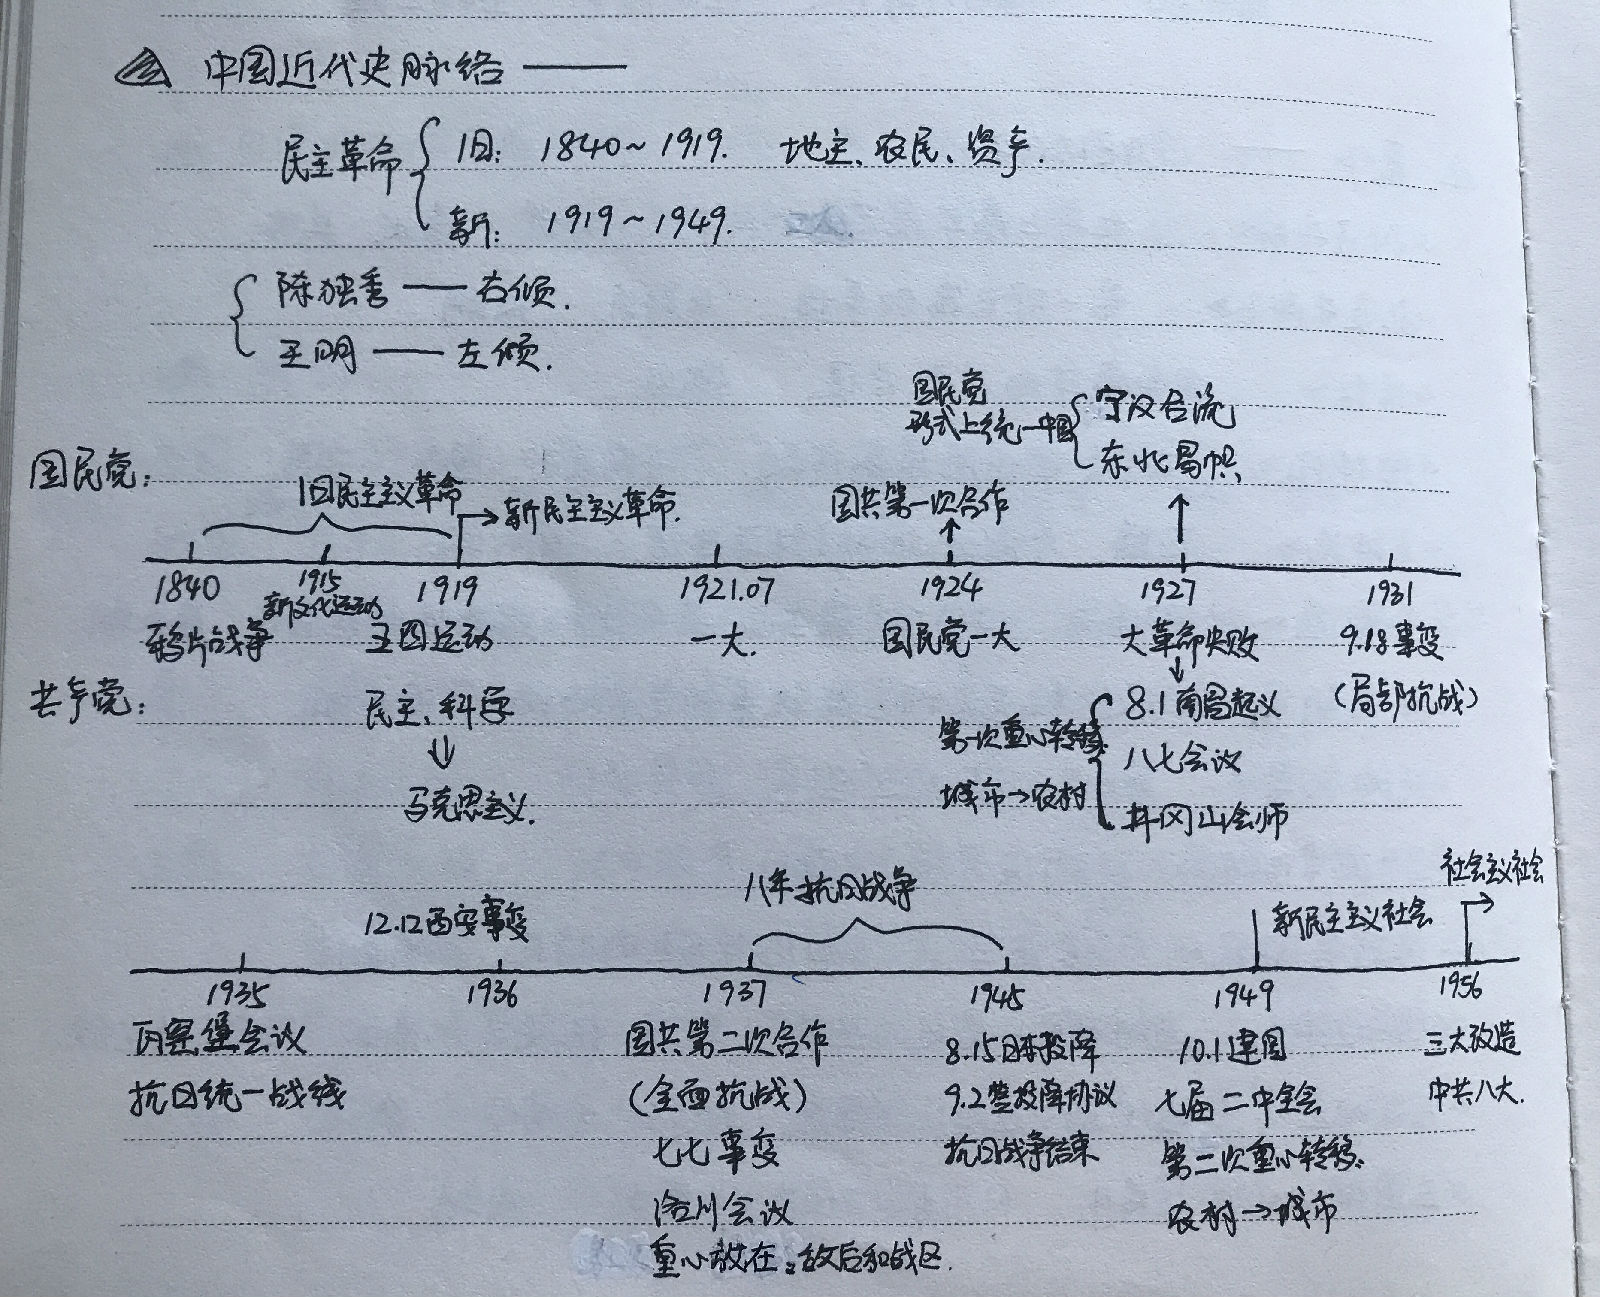 中国近代史脉络——
民主革命 旧: 1840~1919. 地主、农民、资产.
新: 1919~1949.
陈独秀——右倾.
王明——左倾.
国民党
形式上统一中国
宁汉合流
东北易帜
国民党:
旧民主主义革命
→新民主主义革命.
国共第一次合作
1840
1915
1919
1921.07
1924
1927
1931
新文化运动
鸦片战争
五四运动
一大.
国民党一大
大革命失败
9.18事变
共产党:
民主、科学
马克思主义.
第一次重心转移
城市→农村
8.1南昌起义
八七会议
井冈山会师
(局部抗战)
12.12西安事变
八年抗日战争
新民主主义社会
社会主义社会
1935
1936
1937
1945
1949
1956
瓦窑堡会议
抗日统一战线
国共第二次合作
(全面抗战)
七七事变
洛川会议
重心放在:敌后和战区.
8.15日本投降
9.2签投降协议
抗日战争结束
10.1建国
七届二中全会
第二次重心转移:
农村→城市
三大改造
中共八大.